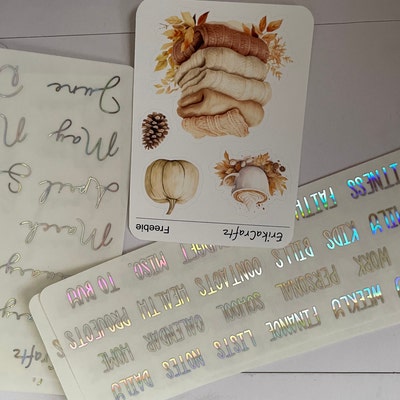 ErikaCraftz Freebie
March
April
May
June
DAILY NOTES LISTS FINANCE WEEKLY
HOME CALENDAR SCHOOL PERSONAL WORK
PROJECTS HEALTH CONTACTS BILLS KIDS
TO BUY MISC FAITH FITNESS